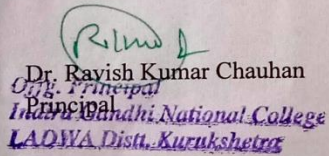 Dr. Ravish Kumar Chauhan
Offg. Principal
Principal
Indira Gandhi National College
LADWA Distt. Kurukshetra